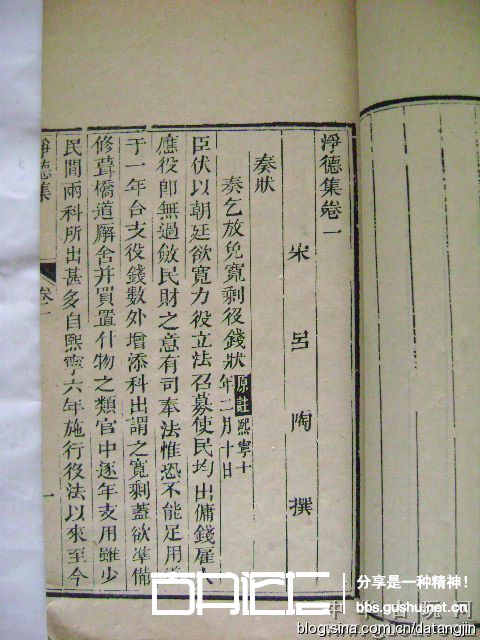 淨德集卷一
宋 呂 陶 撰
奏狀
奏乞放免寬剩役錢狀 原註熙寧十年二月十日
臣伏以朝廷欲寬力役立法召募使民均出傭錢雇人
應役卽無過斂民財之意有司奉法惟恐不能足用
于一年合支役錢數外增添科出謂之寬剩蓋欲準備
修葺橋道廨舍并買置什物之類官中逐年支用雖少
民間兩科所出甚多自熙寧六年施行役法以來至今
淨德集 卷一 一
分享是一种精神!
bbs.gushu.net.cn
blog.sina.com.cn/datangjin